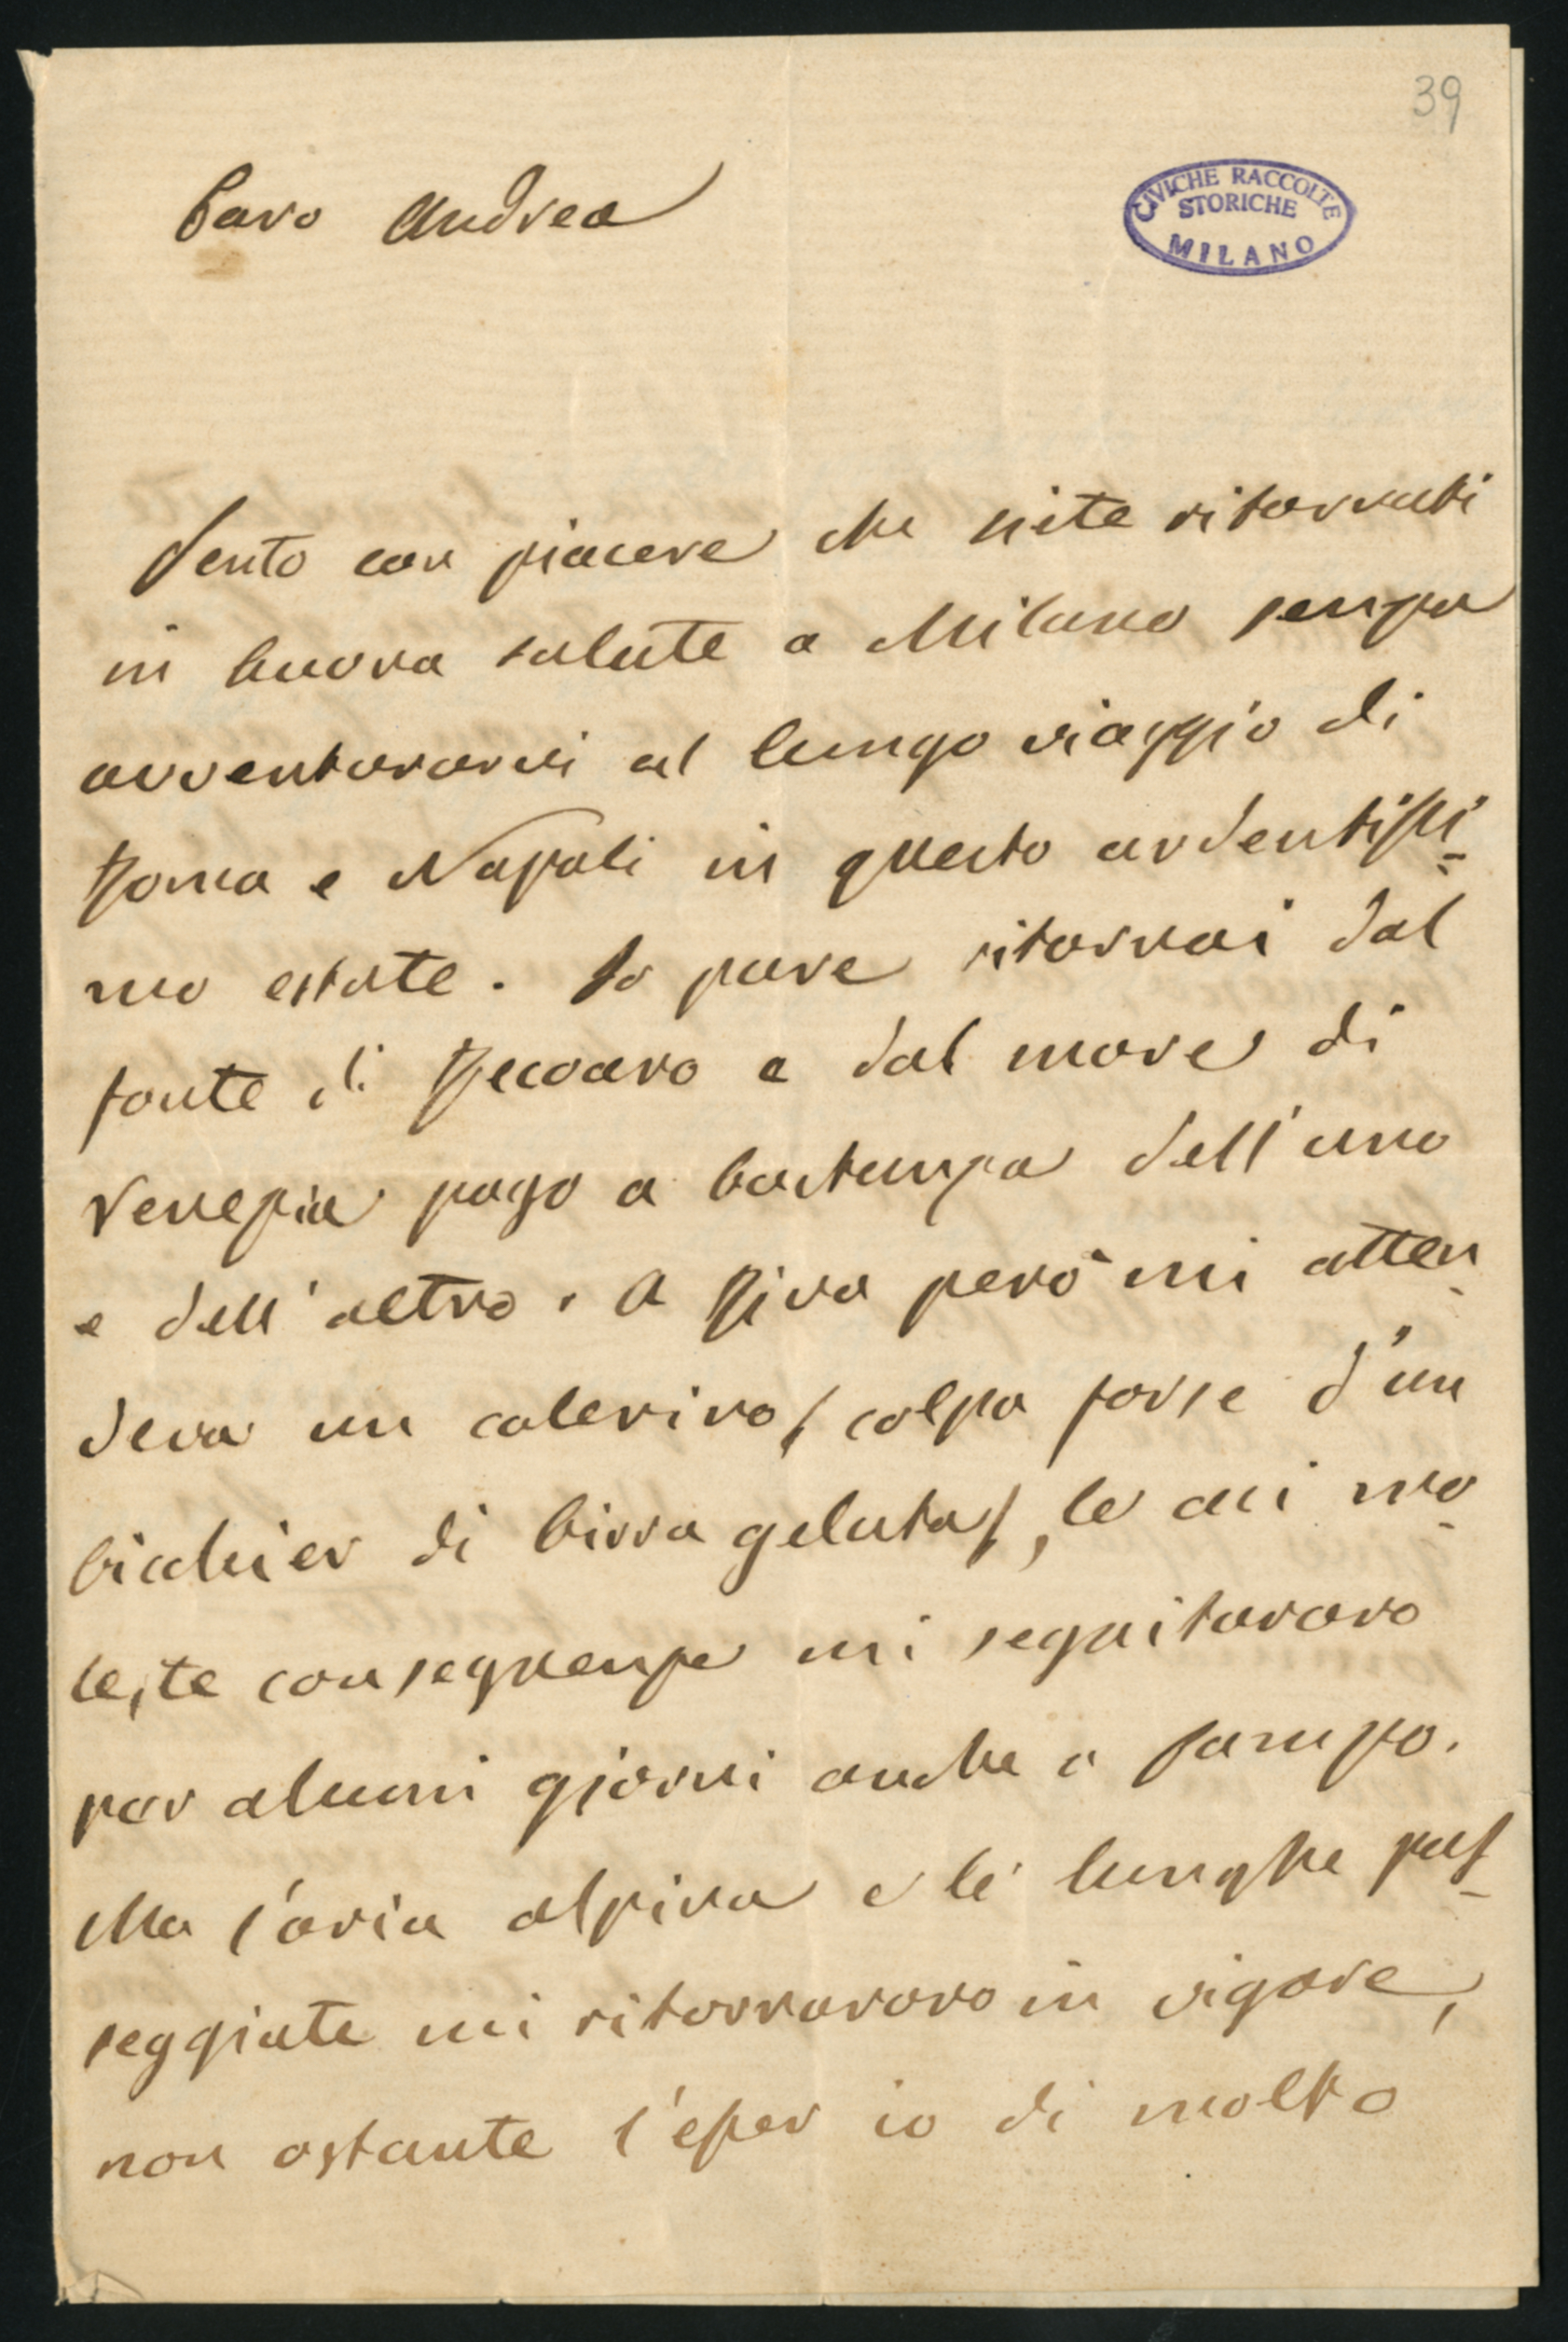 39
CIVICHE RACCOLTE
STORICHE
MILANO
Caro Andrea
Sento con piacere che siete ritornati
in buona salute a Milano senza
avventurarvi al lungo viaggio di
Roma e Napoli in questo ardentissi-
mo estate. Io pure ritornai dal
fonte di Recoaro e dal mare di
Venezia pago a bastanza dell'uno
e dell'altro. A Riva però mi atten-
deva un colerino ( colpa forse d'un
bicchier di birra gelata ), le cui mo-
leste conseguenze mi seguitarono
per alcuni giorni anche a
Ma l'aria alpina e le lunghe pas-
seggiate mi ritornarono in vigore,
non ostante l'esser io di molto